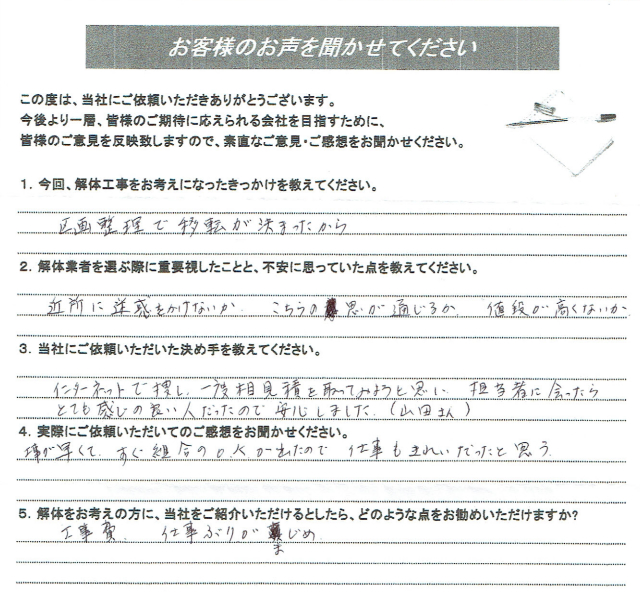 お客様のお声を聞かせてください
この度は、当社にご依頼いただきありがとうございます。
今後より一層、皆様のご期待に応えられる会社を目指すために、
皆様のご意見を反映致しますので、素直なご意見・ご感想をお聞かせください。
1. 今回、解体工事をお考えになったきっかけを教えてください。
区画整理で移転が決まったから
2. 解体業者を選ぶ際に重要視したことと、不安に思っていた点を教えてください。
近所に迷惑をかけないか、こちらの思が通じるか 値段が高くないか
3. 当社にご依頼いただいた決め手を教えてください。
インターネットで捜し、一度相見積を取ってみようと思い 担当者に会ったら
とても感じの良い人だったので安心しました。(山田さん)
4. 実際にご依頼いただいてのご感想をお聞かせください。
が早くて、すぐ組合のOKが出たので 仕事もきれいだったと思う
5. 解体をお考えの方に、当社をご紹介いただけるとしたら、どのような点をお勧めいただけますか?
工事費、 仕事ぶりがまじめ